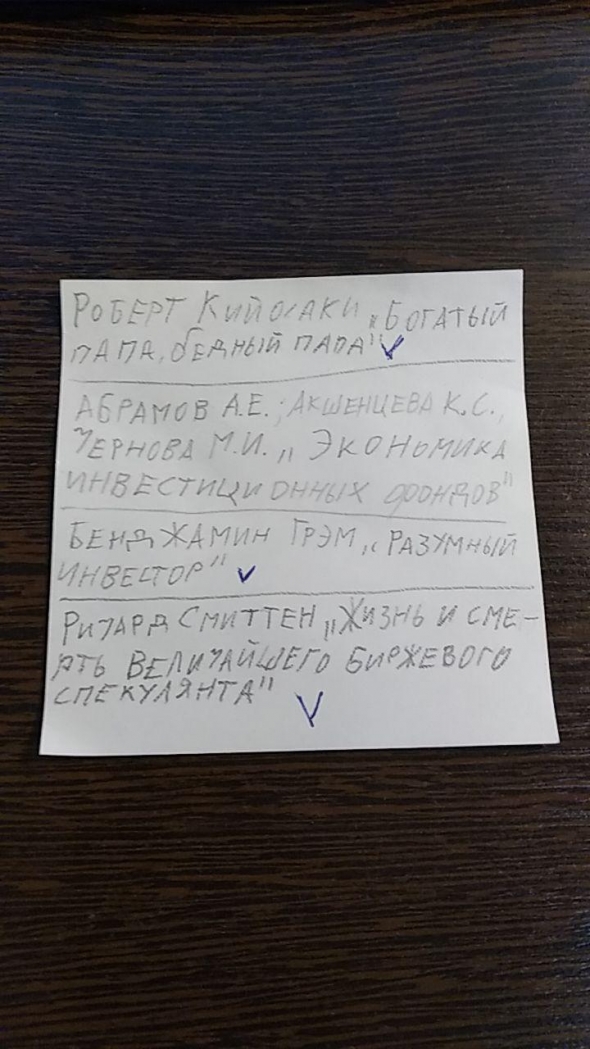 Роберт Кийосаки „Богатый
папа, бедный папа"
Абрамов А.Е.; Акшенцева К.С.,
Чернова М.И. „Экономика
инвестиционных фондов"
Бенджамин Грэм „Разумный
инвестор"
Ричард Смиттен „Жизнь и сме-
рть величайшего биржевого
спекулянта"